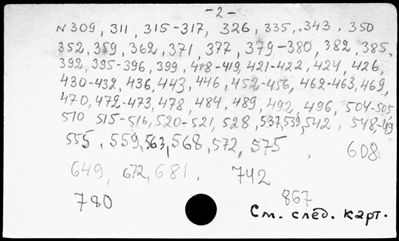 -2-
N 309, 311, 315-317, 326, 335, 343, 350
352, 359, 362, 371, 377, 379-380, 382, 385,
392, 395-396, 399, 418-419, 421-422, 424, 426,
430-432, 436, 443, 446, 452-456, 462-463, 469,
470, 472-473, 478, 484, 489, 492, 496, 504-505,
510 515-516, 520-521, 528, 537, 539, 542, 548-549
555, 559, 563, 568, 572, 575, 608
649, 672, 681, 742
780 867
См. след. карт.